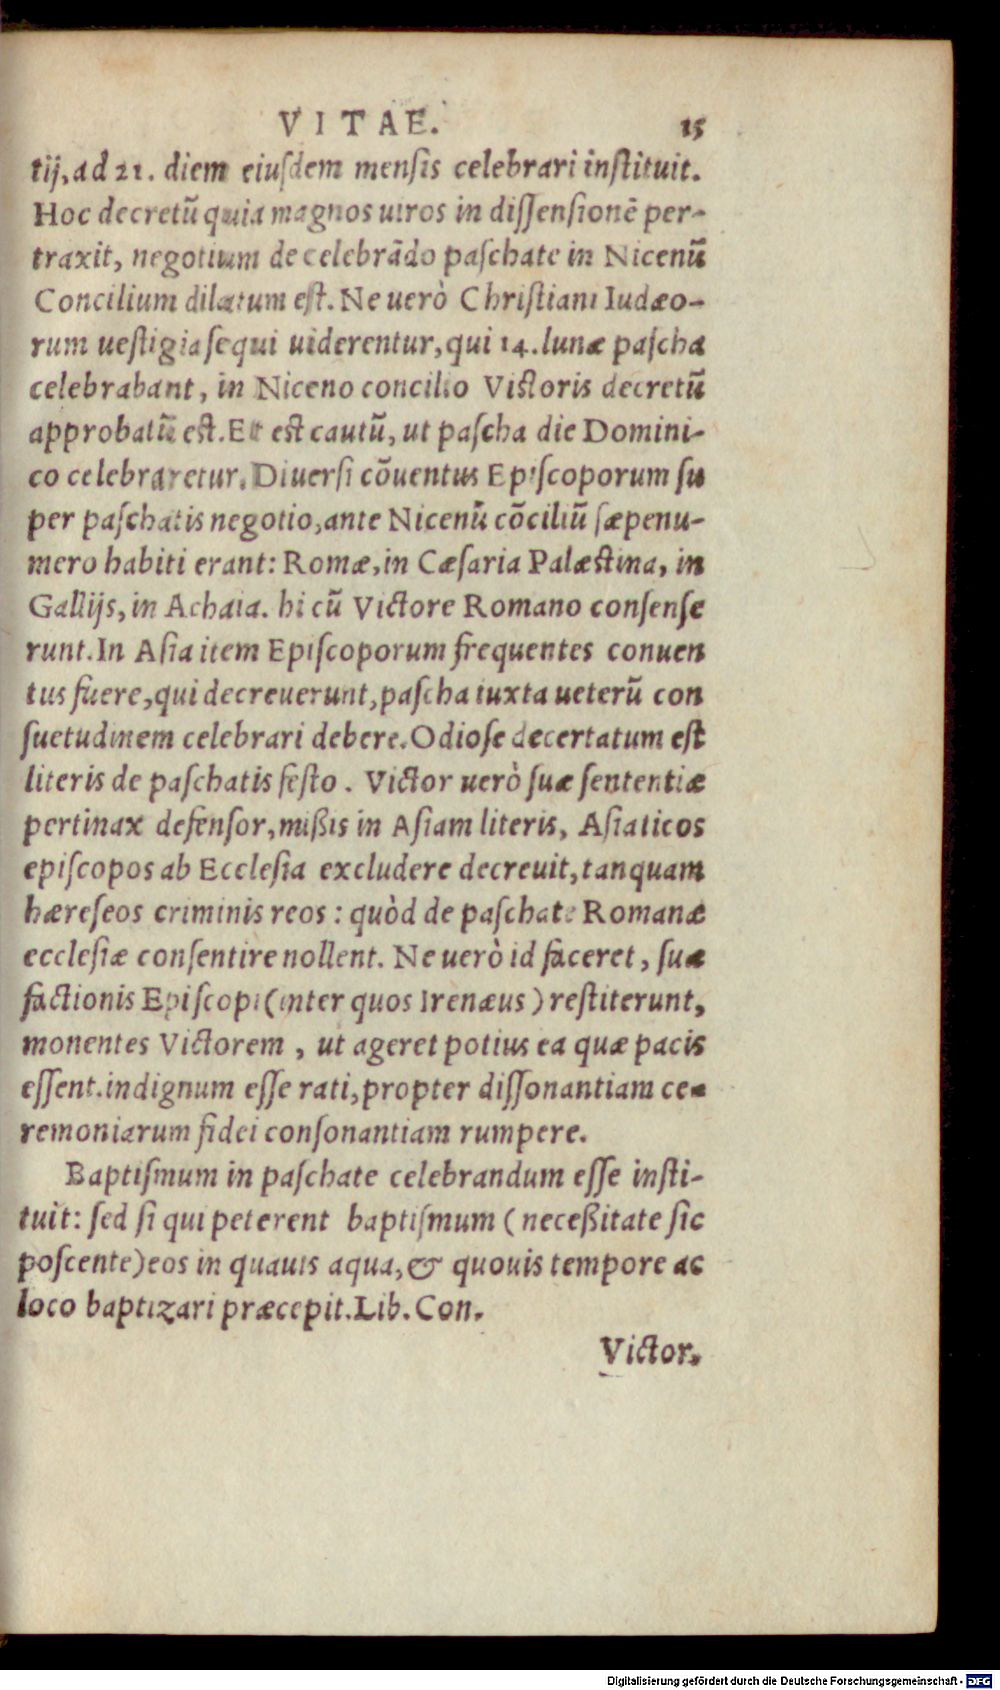 VITAE. 15
tij, ad 21. diem eiuſdem menſis celebrari inſtituit.
Hoc decretū quia magnos uiros in diſſenſionē per-
traxit, negotium de celebrādo paſchate in Nicenū
Concilium dilatum eſt. Ne uerò Chriſtiani Iudæo-
rum ueſtigia ſequi uiderentur, qui 14. lunæ paſcha
celebrabant, in Niceno concilio Victoris decretū
approbatū eſt. Et eſt cautū, ut paſcha die Domini-
co celebraretur. Diuerſi cōuentus Epiſcoporum ſu
per paſchatis negotio, ante Nicenū cōciliū ſæpenu-
mero habiti erant: Romæ, in Cæſaria Palæſtina, in
Gallijs, in Achaia. hi cū Victore Romano conſenſe
runt. In Aſia item Epiſcoporum frequentes conuen
tus fuere, qui decreuerunt, paſcha iuxta ueterū con
ſuetudinem celebrari debere. Odioſe decertatum eſt
literis de paſchatis feſto. Victor uerò ſuæ ſententiæ
pertinax defenſor, mißis in Aſiam literis, Aſiaticos
epiſcopos ab Eccleſia excludere decreuit, tanquam
hæreſeos criminis reos: quòd de paſchate Romanæ
eccleſiæ conſentire nollent. Ne uerò id faceret, ſuæ
factionis Epiſcopi (inter quos Irenæus) reſtiterunt,
monentes Victorem, ut ageret potius ea quæ pacis
eſſent. indignum eſſe rati, propter diſſonantiam ce-
remoniarum fidei conſonantiam rumpere.
Baptiſmum in paſchate celebrandum eſſe inſti-
tuit: ſed ſi qui peterent baptiſmum (neceßitate ſic
poſcente) eos in quauis aqua, & quouis tempore ac
loco baptizari præcepit. Lib. Con.
Victor.
Digitalisierung gefördert durch die Deutsche Forschungsgemeinschaft - DFG